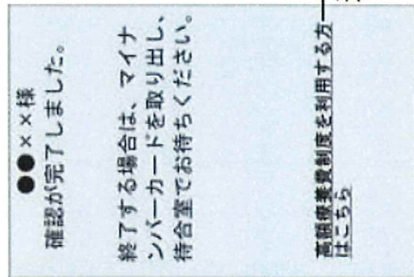 ●●××様
確認が完了しました。
終了する場合は、マイナ
ンバーカードを取り出し、
待合室でお待ちください。
高額療養費制度を利用する方
はこちら